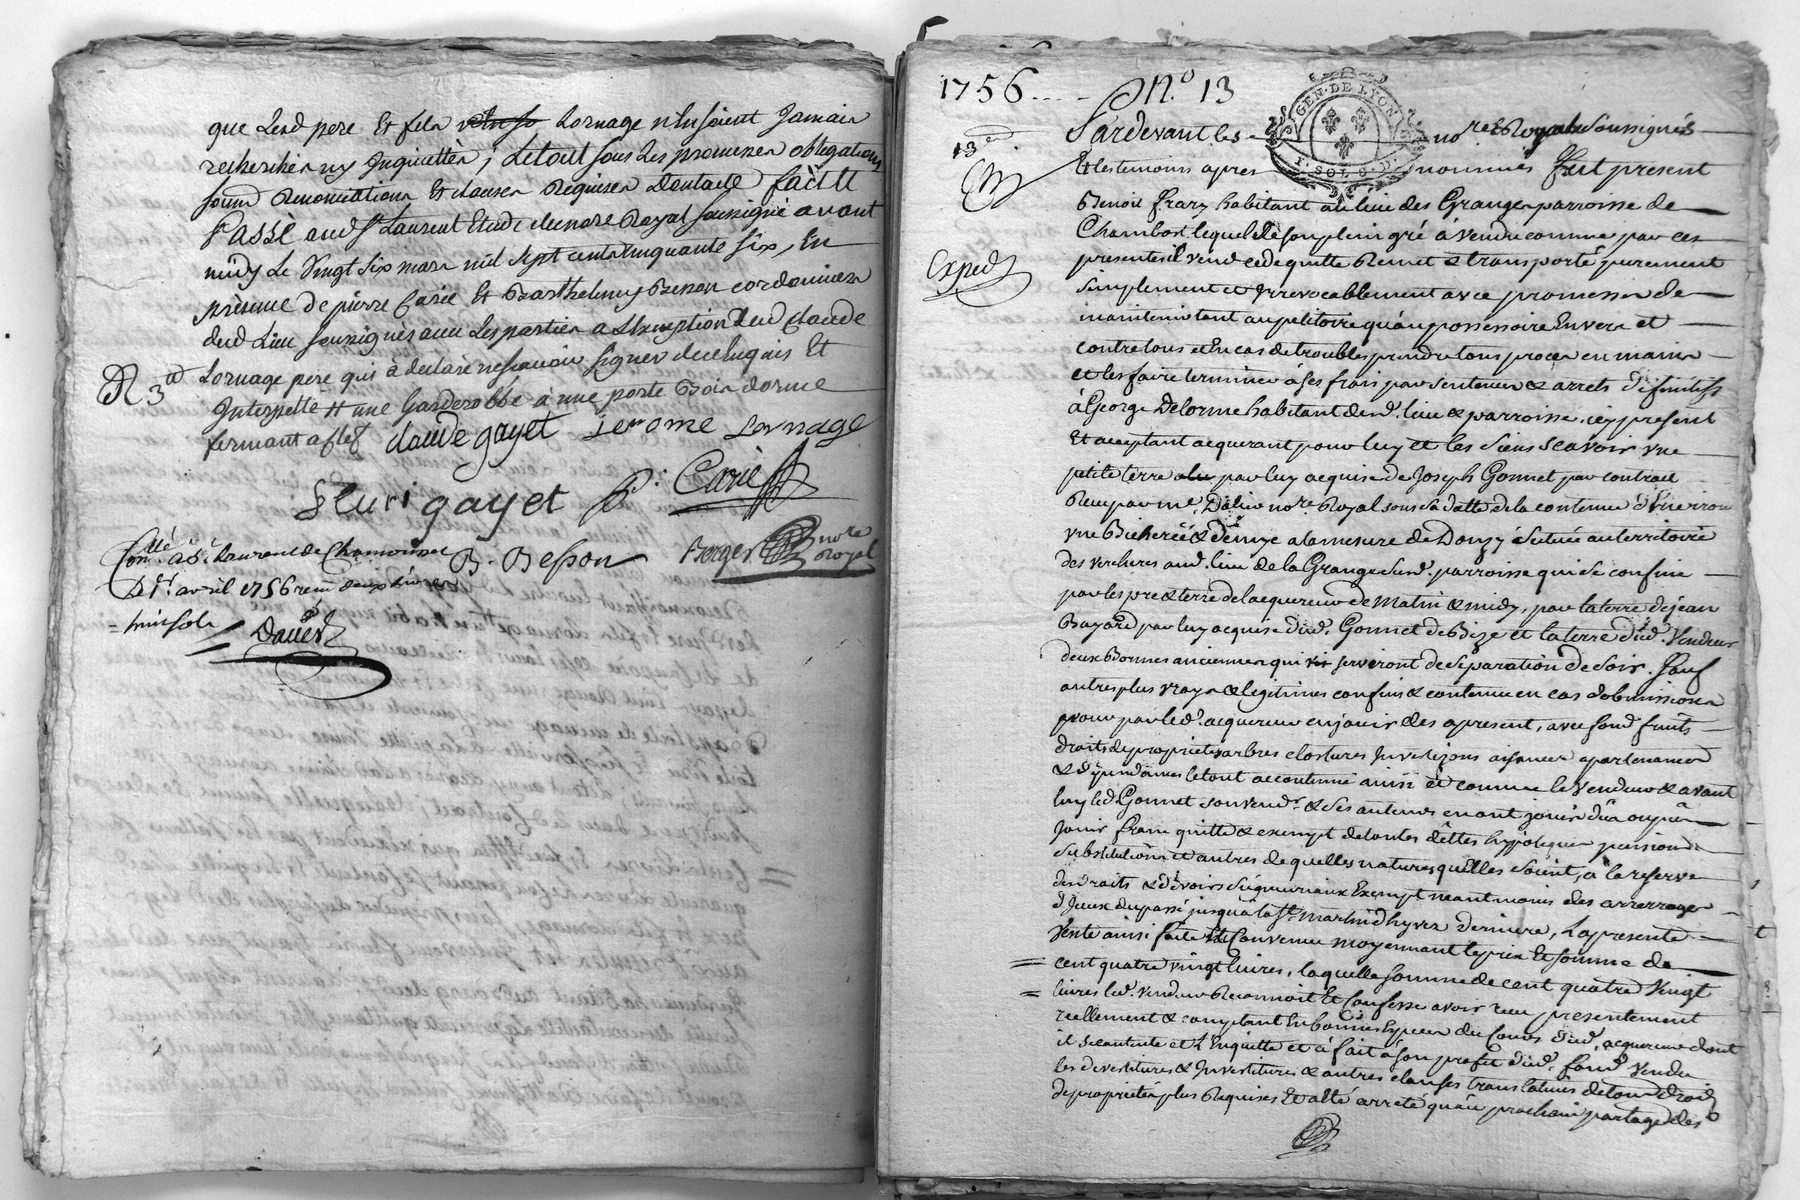 que led pere Et fils Lornage n'en soient Jamais
recherches ny Inquiettes, Letout sous Les promesses obligations
soum Renonciations Et clauses Requises Dontacte fait Et
Passé aud St Laurent Etude du nore Royal soussigné avant
midy Le Vingt six mars mil sept cent cinquante six, En
présence de pierre Carie Et Barthelemy Besson cordonniers
dud Lieu soussignés avec Les parties a L'exception dud Claude
Lornage pere qui a declaré ne scavoir signer de ce Enquis Et
Interpellé # une Garderobbe a une porte Bois dorme
fermant a clef claude gayet Jerome Lornage
R 3
fleuri gayet P. Carie
B. Besson Borges nore Royal
Conllé à St Laurent de Chamousset
Le 1r avril 1756 reçu deux livres
huit sols
Dauer
1756 .... N.o 13
13e
Pardevant les nores Royaux Soussignés
Et les temoins apres nommés fut present
Benoit frary habitant au lieu des Granges parroisse de
Chambost lequel de son plein gré à vendu comme par ces
presentes il vend cede quitte Remet & transporte purement
Exped
simplement et Irrevocablement avec promesse de
maintenir tant au petitoire qu'au possessoire Envers et
contre tous et En cas de troubles prendre tous proces en mains
et les faire terminer à ses frais par sentences & arrets definitifs
à George Delorme habitant dud. lieu & parroisse icy present
Et acceptant acquerant pour luy et les siens scavoir une
petite terre par luy acquise de Joseph Gonnet par contract
Reçu par me. Dalin nore Royal sous sa datte de la contenue d'Environ
une Bicherée & demye a la mesure de Donzy située au territoire
des vercheres aud. lieu de la Grange susd. parroisse qui se confine
par les pre & terre de l'acquereur de Matin & midy, par la terre de jean
Bayard par luy acquise dud. Gonnet de Bize et la terre dud. Vendeur
deux Bornes anciennes qui serviront de separation de soir. Sauf
autres plus vrays & legitimes confins & contenue en cas d'obmission
pour par led. acquereur en jouir des apresent, avec fond fruits
droits de proprietes arbres clostures Investizons aisances apartenances
& dependances le tout accoutumé ainsi et comme le Vendeur & avant
luy led. Gonnet son vendr. & ses auteurs en ont jouis dû ou pû en
jouir franc quitte & exempt de toutes dettes hypoteques pensions
substitutions et autres de quelles natures qu'elles soient, à la reserve
des droits & devoirs seigneuriaux Exempt neantmoins des arrerages
d'yceux du passé jusqu'à la St. martin d'hyver derniere, La presente
Vente ainsi faite Et Convenue moyennant le prix Et somme de
cent quatre vingt livres, laquelle somme de cent quatre Vingt
livres led. vendeur Reconnoit Et Confesse avoir reçu presentement
reellement & comptant En bonnes Especes du Cours dud. acquereur dont
il se contente et L'Enquitte et a fait à son profit dud. fond vendu
les devestitures & Investitures & autres clauses translatives de tous droits
de proprietés plus Requises Et a eté arreté qu'au prochain partage des
GEN. DE LYON
1. SOL 8. D.